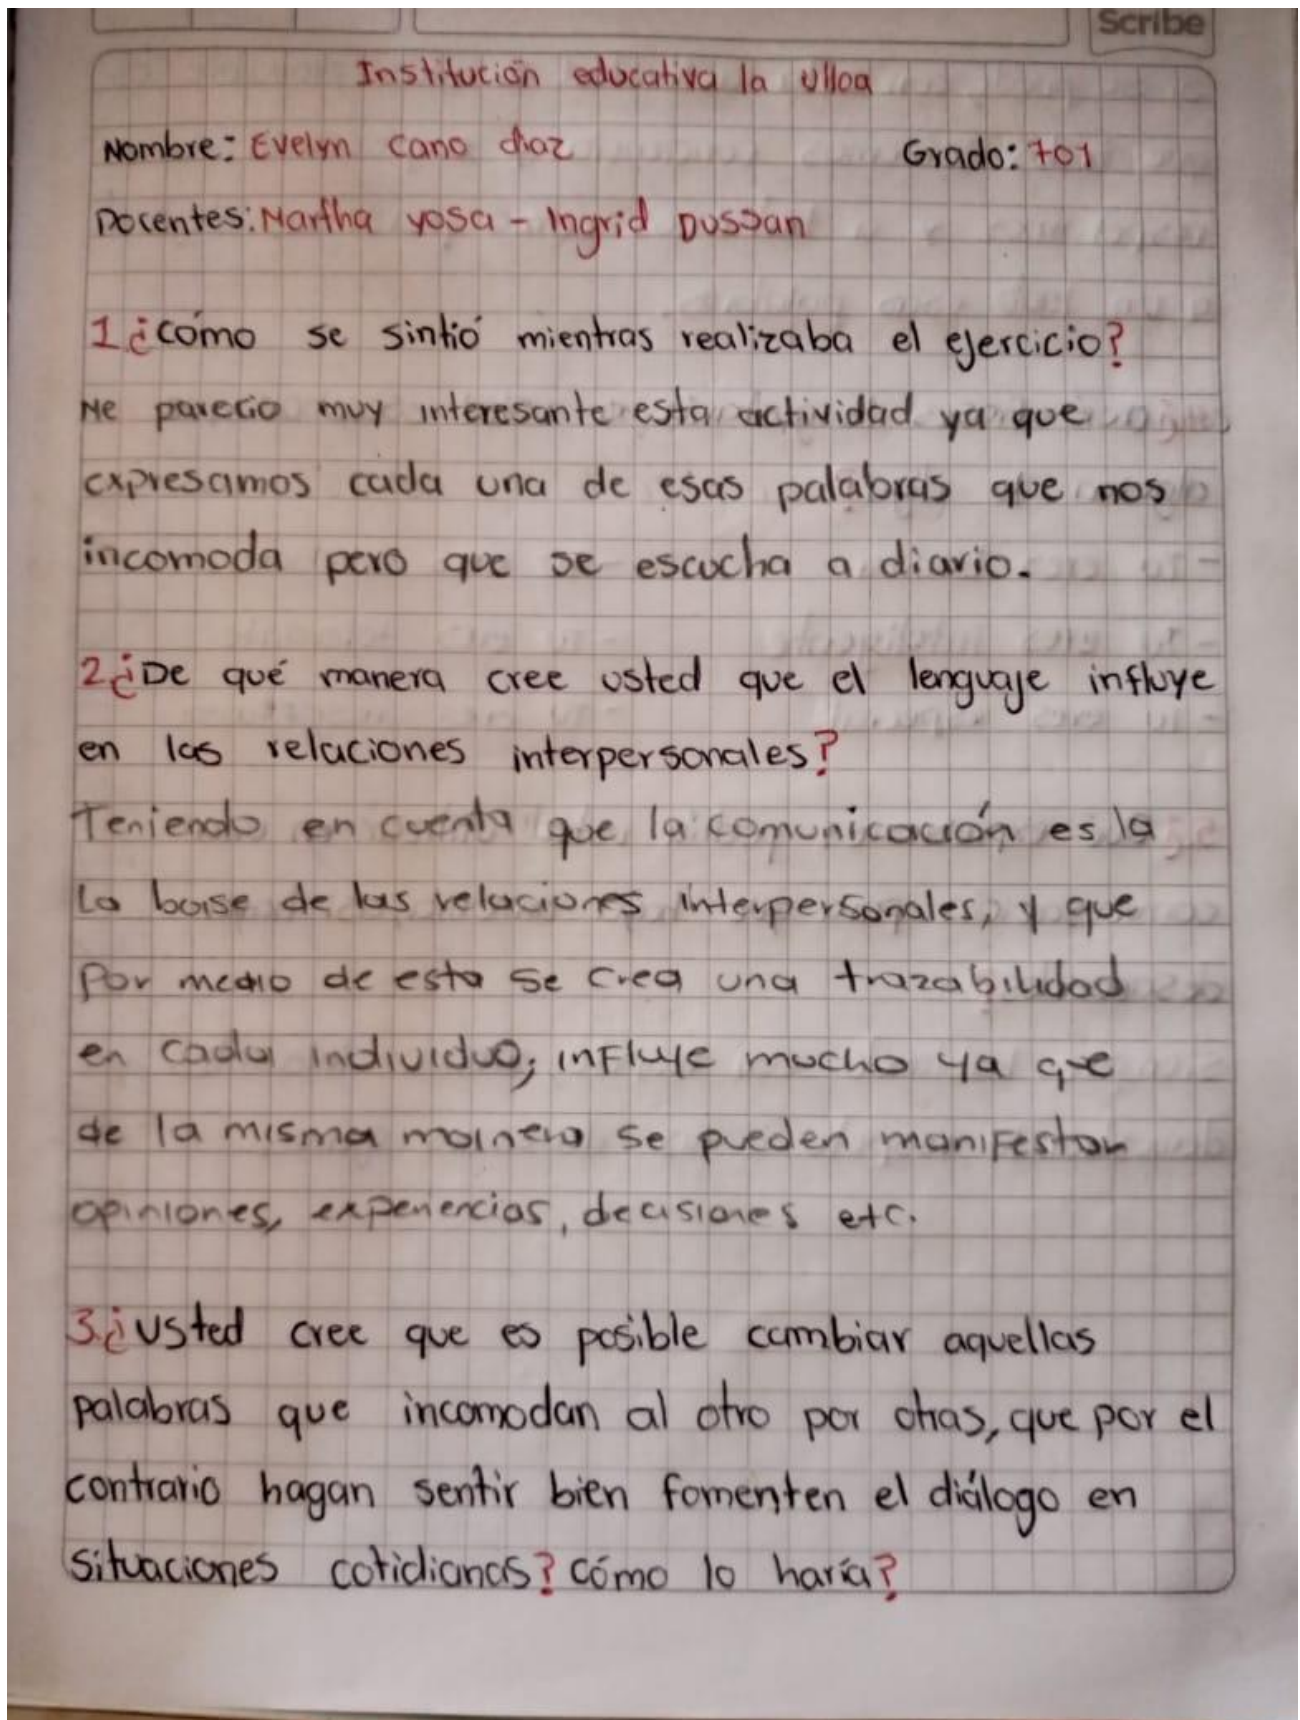 Scribe
Institución educativa la Ulloa
Nombre: Evelyn Cano diaz Grado: 701
Docentes: Martha yosa - Ingrid Dussan
1 ¿cómo se sintió mientras realizaba el ejercicio?
Me parecio muy interesante esta actividad ya que
expresamos cada una de esas palabras que nos
incomoda pero que se escucha a diario.
2 ¿De qué manera cree usted que el lenguaje influye
en las relaciones interpersonales?
Teniendo en cuenta que la comunicación es la
La base de las relaciones interpersonales, y que
por medio de esta se crea una trazabilidad
en cada individuo; influye mucho ya que
de la misma manera se pueden manifestar
opiniones, experiencias, decisiones etc.
3. ¿Usted cree que es posible cambiar aquellas
palabras que incomodan al otro por otras, que por el
contrario hagan sentir bien fomenten el diálogo en
situaciones cotidianas? cómo lo haría?